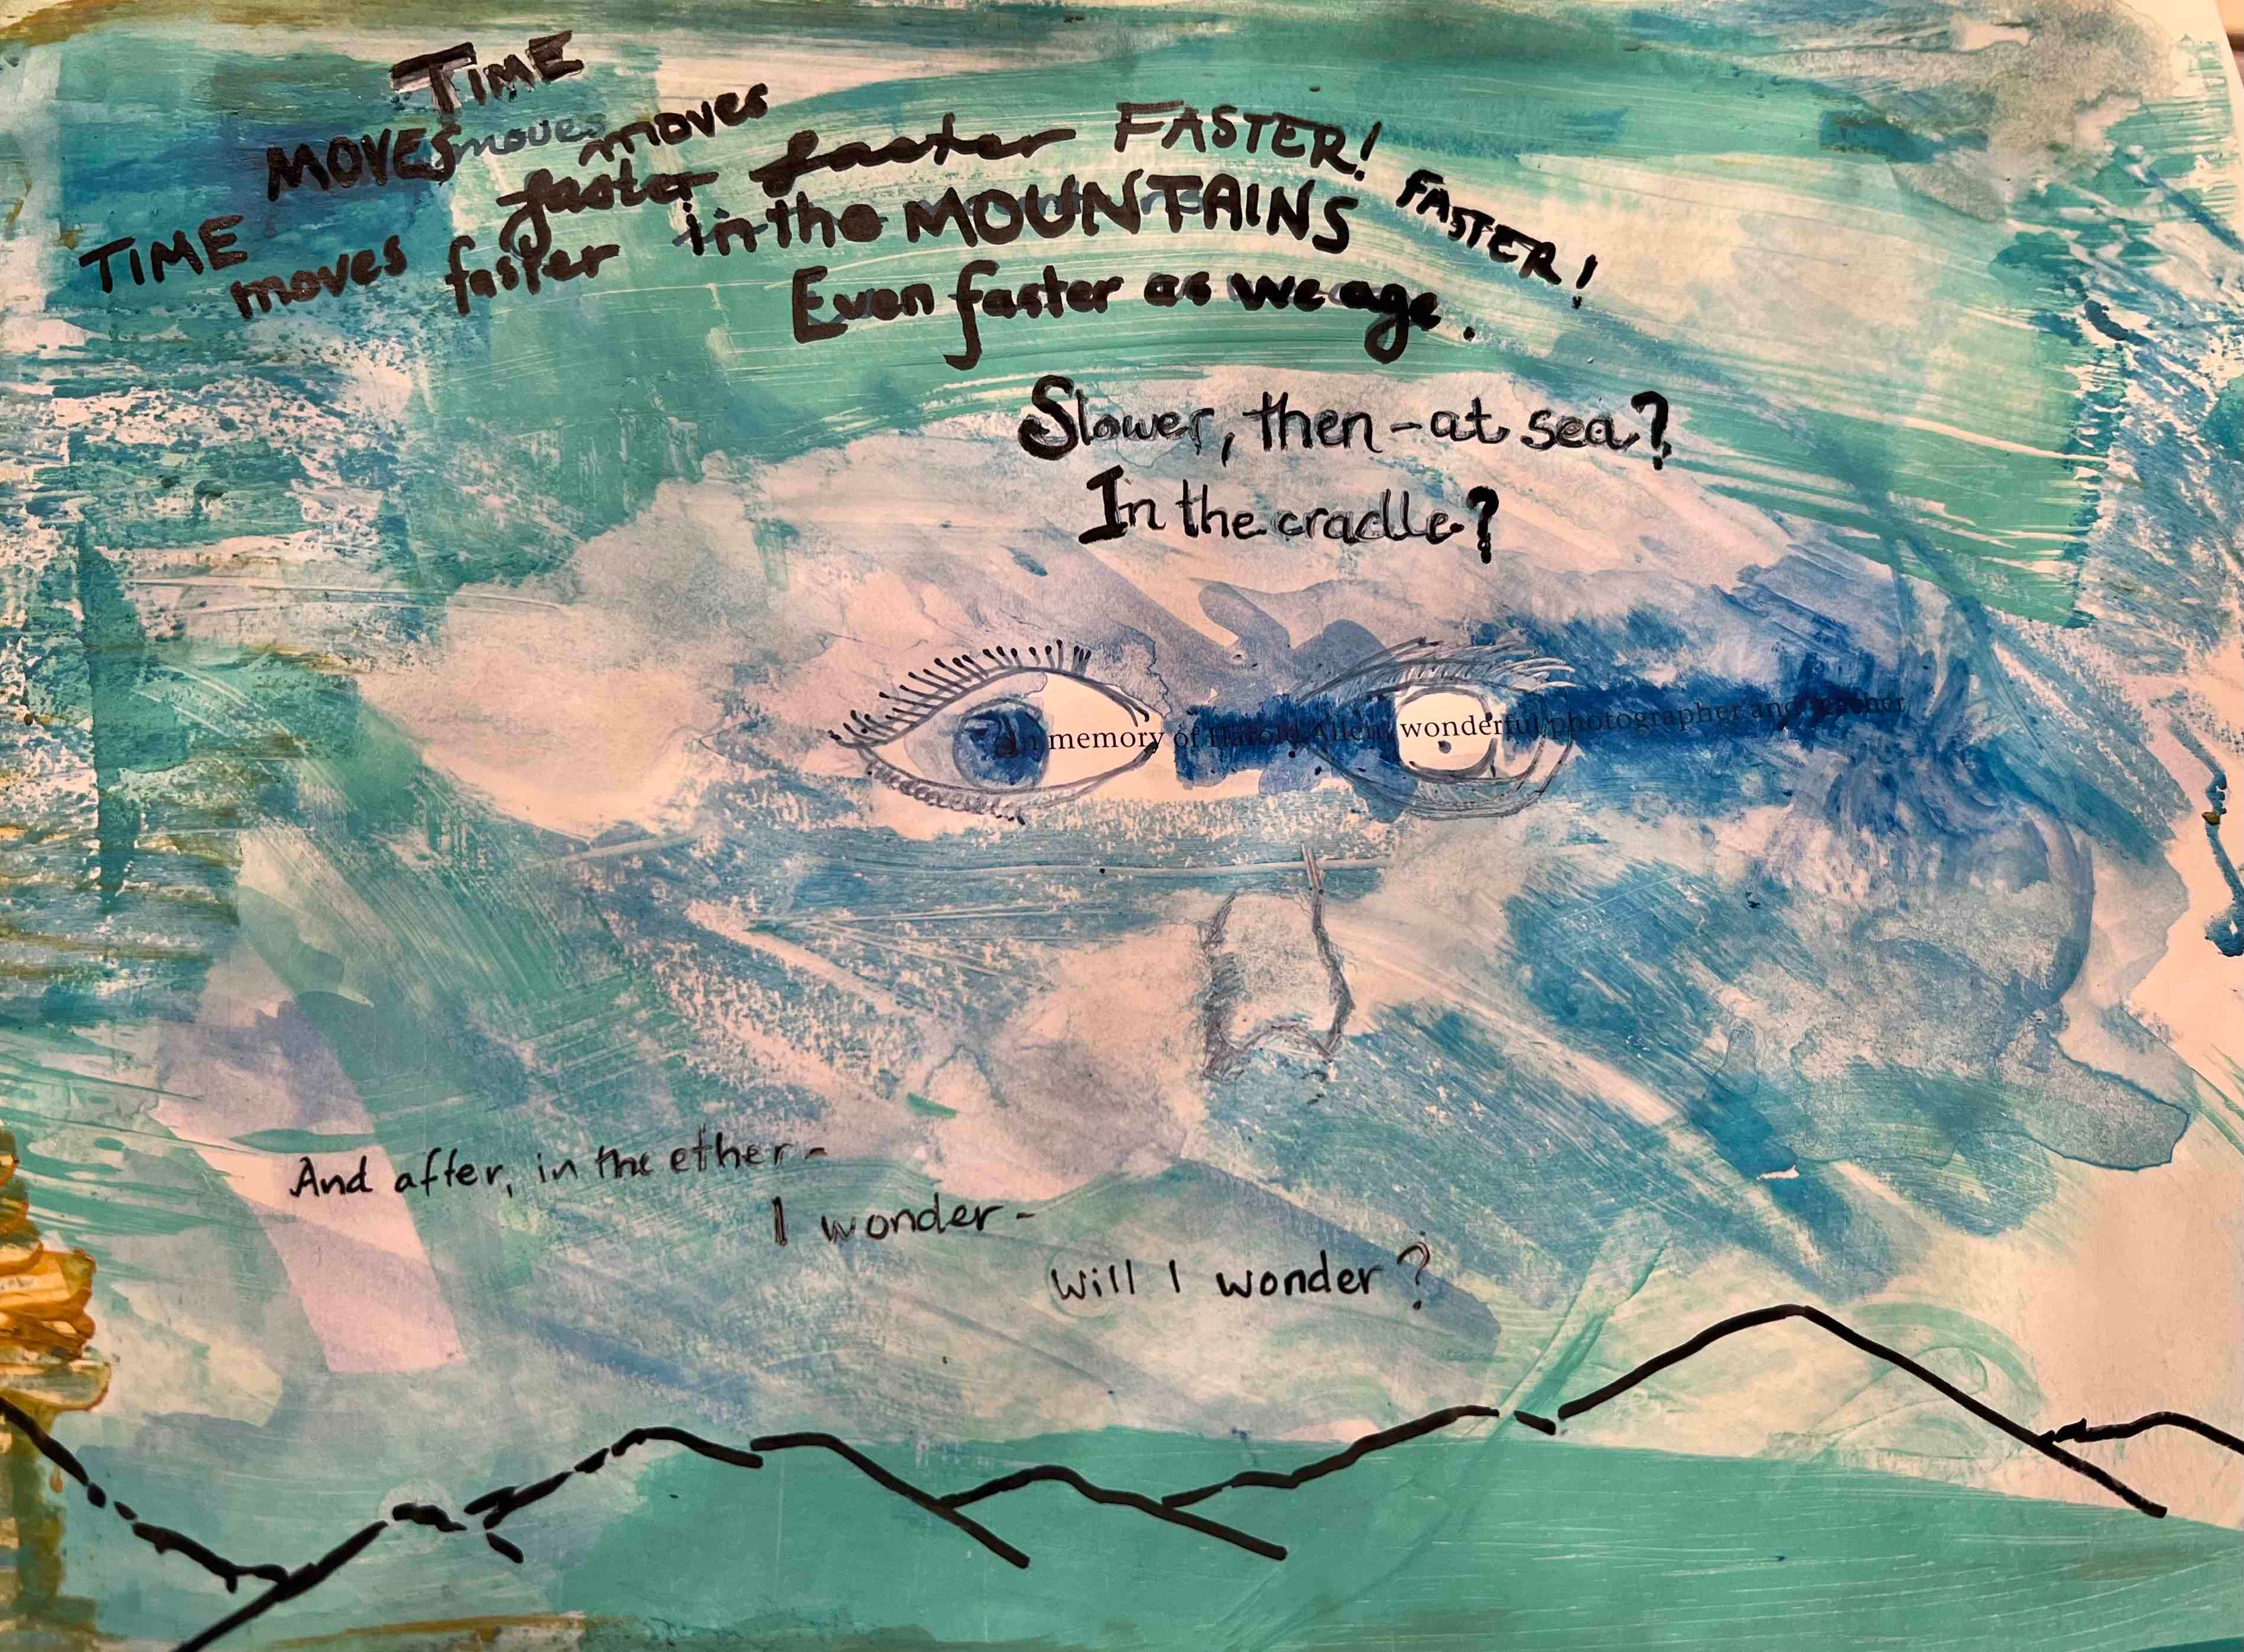 TIME
MOVES moves moves
faster faster faster FASTER! FASTER!
TIME moves faster in the MOUNTAINS
Even faster as we age.
Slower, then - at sea?
In the cradle?
In memory of Harold Allen, wonderful photographer and teacher
And after, in the ether -
I wonder -
Will I wonder?